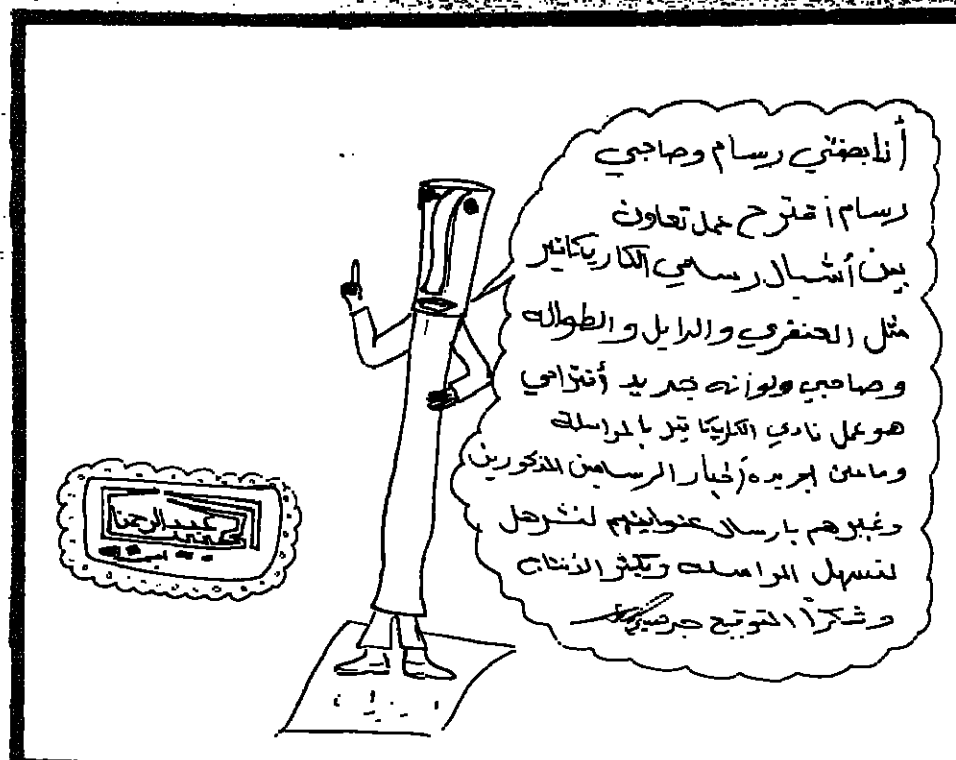 أنا بصفتي رسام وصاحبي
رسام أقترح عمل تعاون
بين أشبال رسامي الكاريكاتير
مثل العنقري والدايل والطواله
وصاحبي ولوزانه جديد أقتراحي
هو عمل نادي الكاريكاتير بالمراسلة
وما على الجريدة إخبار الرسامين المذكورين
وغيرهم بارسال عنواينهم لنشرهل
لتسهل المراسله ويكثر الأنتاج
وشكراً التوقيع
عبدالرحمن